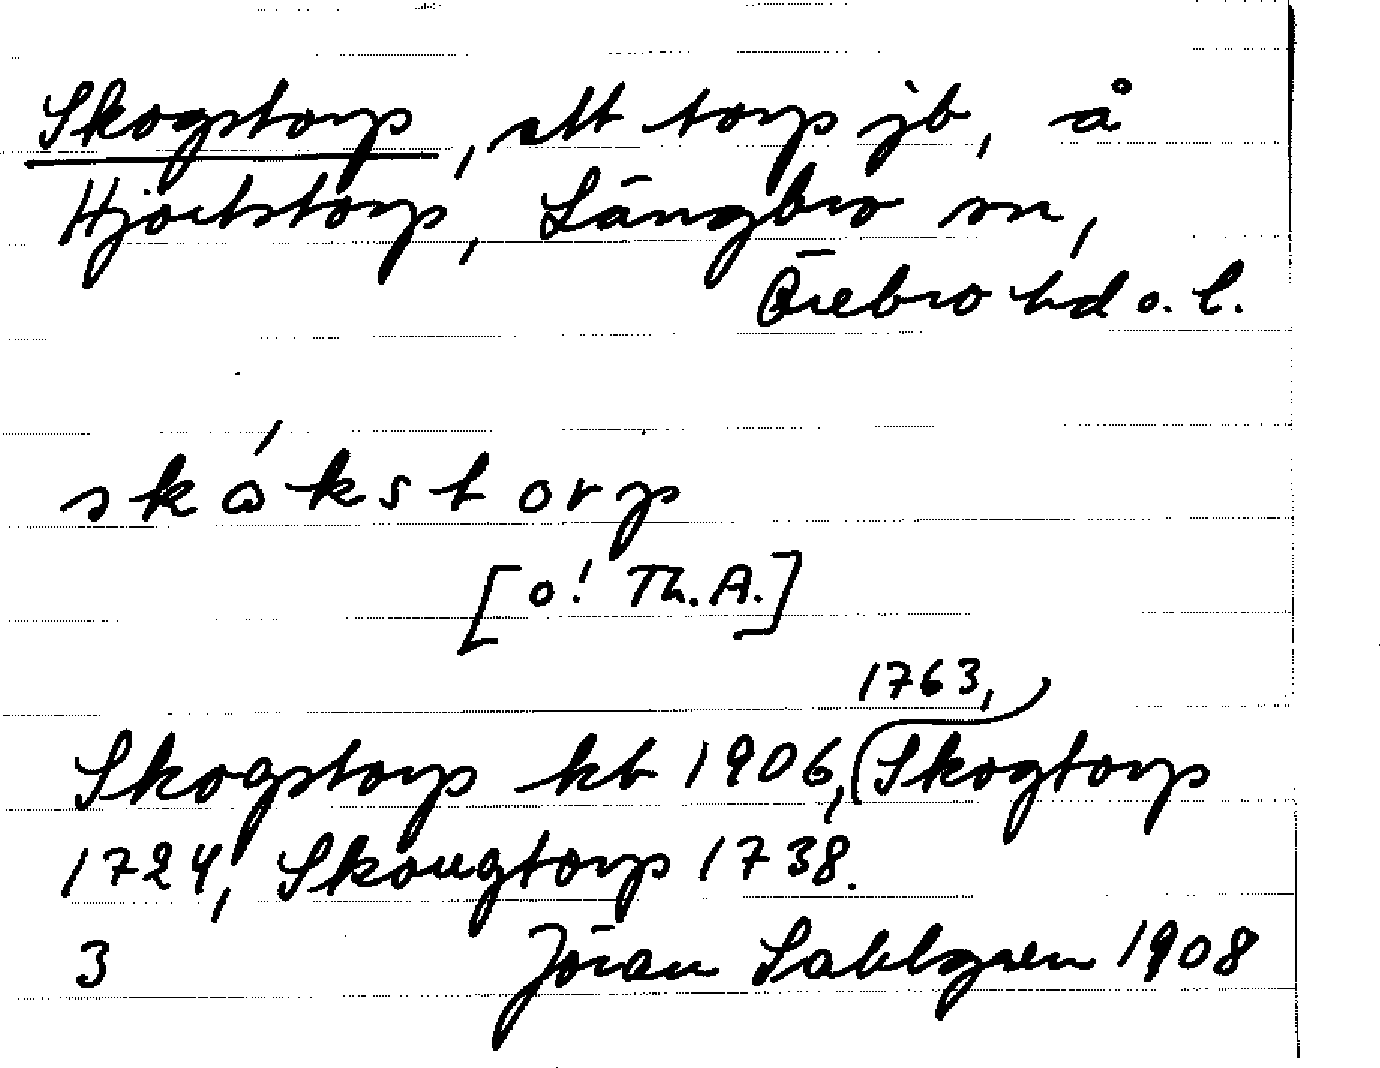 Skogstorp, ett torp jb, å
Hjortstorp, Längbro sn,
Örebro hd o. l.
skó̀kstorp
[o! Th. A.]
1763,
Skogstorp kb 1906, Skogtorp
1724, Skougtorp 1738.
3 Jöran Sahlgren 1908